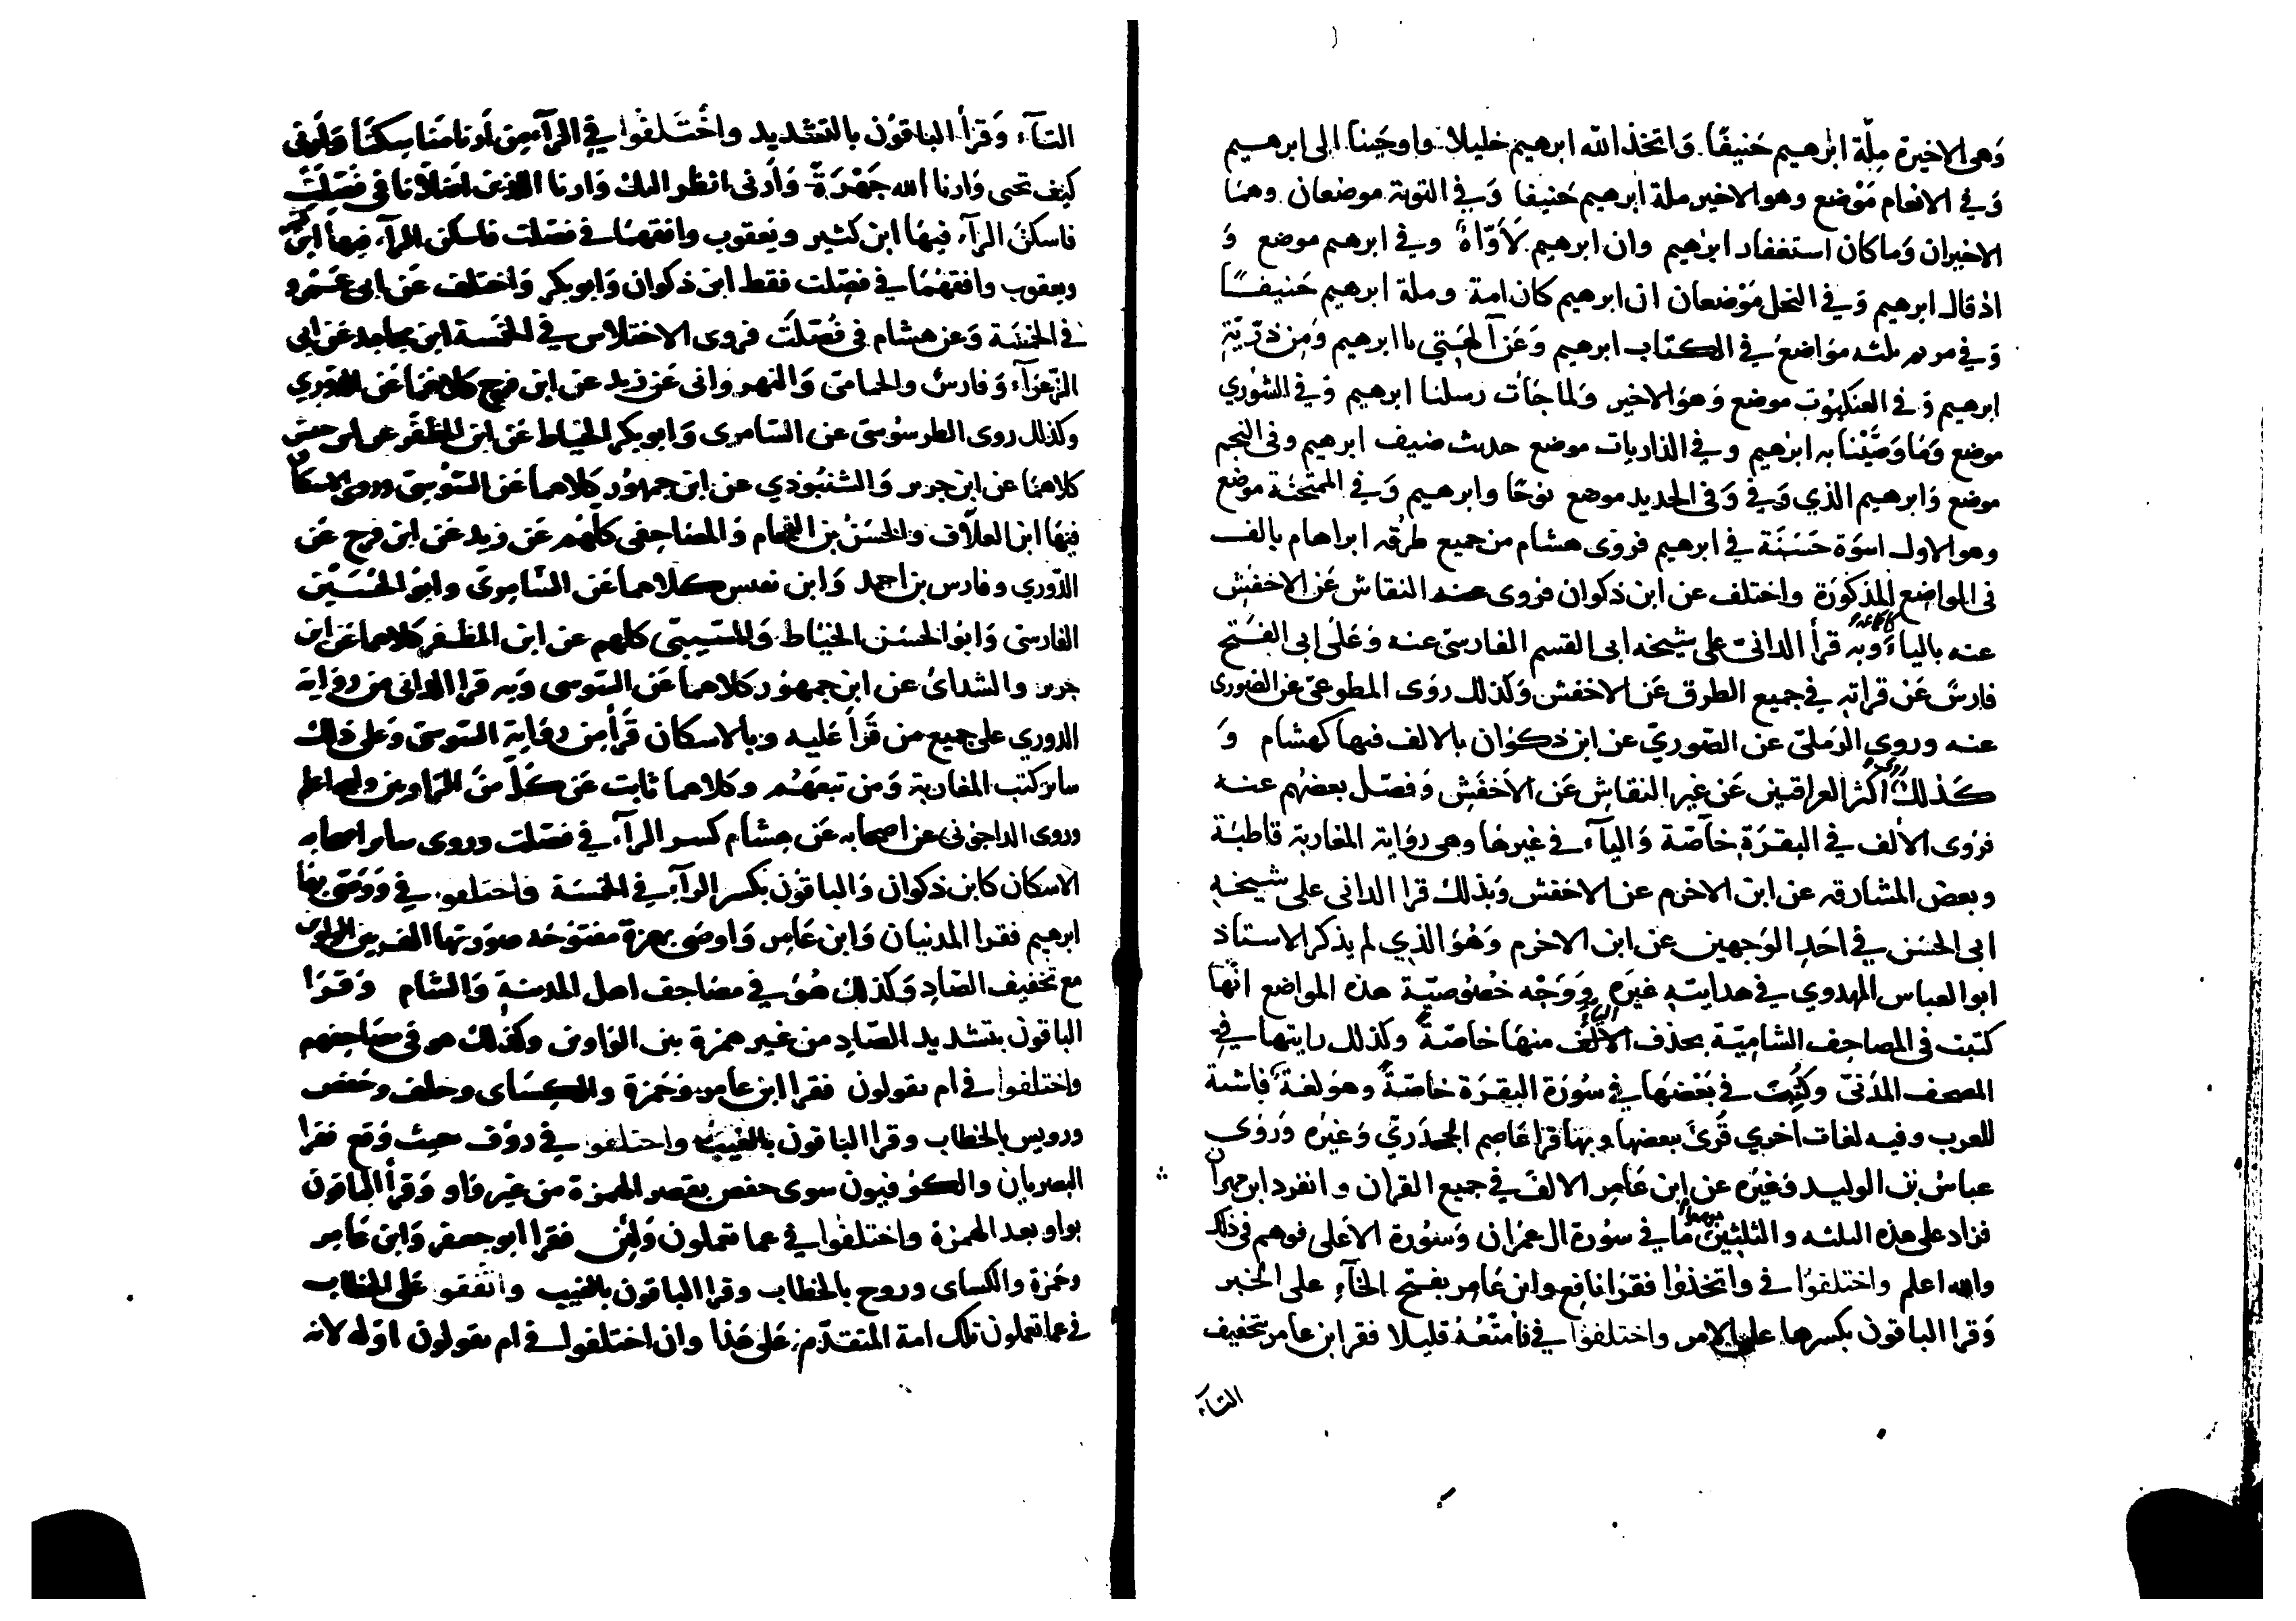 وَهى الاخيرة مِلّة ابرٰهيم حَنيفًا. وَاتخذ الله ابرهيم خليلا. واوحَينا الى ابرهيم
وَفي الانعام مَوْضع وهو الاخير ملة ابرهيم حَنيفا وَفي التوبة موضعان وهما
الاخيران وَما كان استغفار ابرٰهيم وان ابرهيم لَأَوّاهٌ وفي ابرهيم موضع وَ
اذ قال ابرهيم وَفي النحل مَوْضعان ان ابرهيم كان امة وملة ابرهيم حَنيفًا
وَفي مريم ثلثه مَوَاضعُ في الكتاب ابرهيم وَعَن آلِهَتِي يا ابرهيم وَمِن ذرّيّةِ
ابرهيم وَفي العنكبُوت موضع وَهوَ الاخير وَلما جَاءَت رسلنا ابرهيم وَفي الشورى
موضع وَمَا وَصَّيْنا به ابرٰهيم وفي الذاريات موضع حديث ضيف ابرهيم وفي النجم
موضع وَابرهيم الذي وَفي وَفي الحديد موضع نوحًا وابرهيم وَفي الممتحنَة موضع
وهو الاول اسوَة حَسَنَة في ابرهيم فروى هشام من جميع طرقه ابراهام بالف
في المواضع المذكورَة واختلف عن ابن ذكوان فروى عنه النقاش عَن الاخفش
عنه بالياءَ وبه قرأ الدانى على شيخه ابى القسم الفارسىّ عنه وَعَلى ابى الفَتح
فارسَ عَن قراته في جميع الطرق عَن الاخفش وَكذلك روَى المطوعىّ عن الصورى
عنه وروى الرَملىّ عن الصّوريّ عن ابن ذكوَان بالالف فيها كهشام وَ
كَذلك روى اكثر العراقيين عَن غير النقاش عَن الأخفش وَفصّل بعضهُم عنه
فرَوى الألف في البقَرَة خاصّة وَاليآء في غيرها وهى روَاية المغاربة قاطبَة
وبعض المشارقه عن ابن الاخرم عن الاخفش وَبذلك قرا الدانى على شيخه
ابى الحسَن في احَدِ الوَجهين عن ابن الاخرم وَهُوَ الذي لم يذكر الاستاذ
ابو العباس المهدوي في هدايته غيرَه وَوَجْه خصُوصيّة هذه المواضع انّها
كتبت في المصاحف الشاميّة بحذف الياء منهَا خاصّةً وكذلك رايتها في
المصحف المدَنىّ وكُتِبَت في بَعْضهَا في سُورَة البقرَة خاصّةً وهوَ لغة فاشية
للعرب وفيه لغات اخري قُرِئَ ببعضها وبها قرا عَاصم الجحدَريّ وَغيرُه وَرَوى
عباسُ بن الوليد وَغيرَه عن ابن عَامِر الالفَ في جميع القران وانفرد ابن مهران
فزاد على هذه الثلثه والثلثين موضعا ما في سوُرة ال عمران وَسُورة الأعلى فوهم في ذلك
والله اعلم واختلفوُا في واتخذوُا فقرَا نافع وابن عَامر بفتح الخآءِ على الخبر
وَقرا الباقون بكسرها على الامر واختلفوُا في فامتّعُهُ قليلا فقرا ابن عامر بتخفيف
التآء
التآء وَقرَأ الباقوُن بالتشديد واختَلفوا في الرآء من أرنا مَناسكنَا وَارنى
كيف تحيى وَارنا الله جَهْرَةً وَأرنى انظر اليك وَارنا الذين اضلّانا في فصّلت
فاسكنَ الرآء فيهَا ابن كثير ويعقوب وافقهمَا في فصّلت فاسكن الرآء فيها ابن كثير
ويعقوب وافقهُمَا في فصّلت فقط ابن ذكوان وَابو بكر وَاختلف عَن ابى عَمرو
في الخمسَة وَعن هشام في فُصّلَت فروى الاختلاس في الخمسة ابن مجاهد عَن ابى
الزعرَآء وَفارسُ والحمامىّ وَالنهروانى عَن زيد عن ابن فرح كلاهما عَن الدّوري
وكذلك روى الطرسُوسىّ عن السّامرى وَابو بكر الخيّاط عَن ابن المظفّر عن ابن حبش
كلاهمَا عن ابن جرير وَالشنَبُوذي عن ابن جمهوُر كلاهما عَن السّوُسىّ وروى الاسكان
فيهَا ابن العلّاف وَالحسَنُ بن الفحام وَالمصَاحفى كلهُم عَن زيد عَن ابن فرح عَن
الدّوري وفارس بن احمد وَابن نفيس كلاهما عَن السّامرىّ وابوُ الحُسَين
الفارسىّ وَابوُ الحسَن الخيّاط وَالمسَيبىّ كلهم عن ابن المظفر كلاهما عَن ابن
جرير والشذائ عن ابن جمهوُر كلاهما عَن السّوسى وَبه قرا الدانى من روَاية
الدوري على جميع من قَرَأ عَليه وبالاسكان قَرأ من روَاية السّوسىّ وَعلى ذلك
سائر كتب المغاربة وَمَن تبعَهُم وكلاهما ثابت عَن كلّ منَ الرّاويين والله اعلم
وروى الداجوُنى عن اصحابه عَن هشام كسر الرآء في فصّلت وروى سائر اصحابه
الاسكان كابن ذكوان وَالباقوُن بكسر الرآء في الخمسَة واختلفو في وَوَصّى بها
ابرهيم فقرا المدنيان وَابن عَامِر وَاوصَى بهمزة مفتوُحه صورتها الف بين الواوين
مع تخفيف الصّادِ وَكذلك هُوَ في مصَاحف اهل المدينة وَالشام وَقرَا
الباقون بتشديد الصّادِ من غير همزة بين الوَاوين وكذلك هو في مصَاحفهم
واختلفوا في ام يقولون فقرا ابن عامر وَحَمزة والكِسَاى وخلف وحفص
ورويس بالخطاب وقرا الباقون بالغيب واختلفو في روَف حيث وَقع فقرا
البصريان والكوُفيون سوى حفص بقصر الهمزة من غير وَاو وَقرأ الباقون
بواو بعد الهمزة واختلفوُا في عما تعملون وَلئن فقرا ابو جعفر وَابن عَامِر
وحَمزة والكساى وروح بالخطاب وقرا الباقون بالغيب واتّفقو عَلى الخطاب
في عما تعملون تلك امة المتقدّمِ عَلى هَذا وان اختلفوا في ام يقولون اوّله لانه